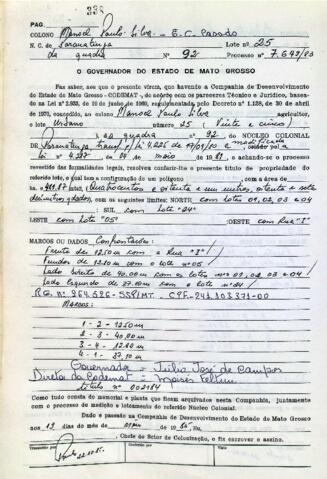 338
PAG.
COLONO Manoel Paulo Silva - E.C. Casado
N. C. de Paranatinga Lote nº 25
da quadra Nº 92 Processo nº 7.649/83
O GOVERNADOR DO ESTADO DE MATO GROSSO
Faz saber, aos que a presente virem, que havendo a Companhia de Desenvolvimento
do Estado de Mato Grosso - CODEMAT -, de acordo com os pareceres Técnico e Jurídico, baseados
na Lei nº 2.933, de 10 de junho de 1969, regulamentada pelo Decreto nº 1.128, de 30 de abril
de 1970, concedido ao colono Manoel Paulo Silva agricultor,
o lote Urbano número 25 (Vinte e cinco)
da quadra nº 92, do NÚCLEO COLONIAL
de Paranatinga, nº 4.226 de e modificada
lei nº 4.287 de de maio de 1981, e achando-se o processo
revestido das formalidades legais, resolveu conferir-lhe o presente título de propriedade do
referido lote, o qual tem a configuração de um polígono, com a área de
481,87 mts², quatrocentos e oitenta e um metros, oitenta e sete
decímetros quadrados, com os seguintes limites: NORTE com lotes 01, 02, 03 e 04
SUL com lote "24"
LESTE com lote "05" OESTE com Rua "I"
MARCOS OU DADOS Confrontados:
Frente de 12.50 m com a Rua "I"
Fundos de 12.50 m com o lote nº 05
Lado direito de 40.00 m com os lotes nº 01, 02, 03 e 04
Lado esquerdo de 37.10 m com o lote nº 24
RG. nº 964.526-SSP/MT. CPF-241.103.371-00
Marcos:
1 - 2 - 12.50 m
2 - 3 - 40.00 m
3 - 4 - 12.50 m
4 - 1 - 37.10 m
Governador - Júlio José de Campos
Diretor da Codemat - Moises Feltrin
título nº 002184
Como tudo consta do memorial e planta que ficam arquivados nesta Companhia, juntamente
com o processo de medição e loteamento do referido Núcleo Colonial.
Dado e passado na Companhia de Desenvolvimento do Estado de Mato Grosso
aos 13 dias do mês de de 19 85
, Chefe do Setor de Colonização, o fiz escrever e assino.